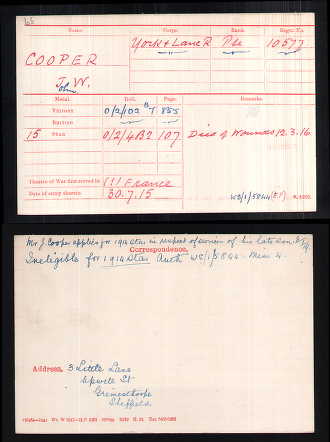 Name. Corps. Rank. Regtl. No.
COOPER York & Lanc R Pte 10577
John W.
Medal. Roll. Page. Remarks.
Victory 0/2/102 B7 855
British
15 Star 0/2/4B2 107 Died of Wounds 12.3.16.
Theatre of War first served in (1) France
Date of entry therein 30.7.15
Mr J. Cooper applies for 1914 Star in respect of service of his late Son
Correspondence.
Ineligible for 1914 Star Auth
Address. 3 Little Lane
Upwell St
Grimesthorpe
Sheffield